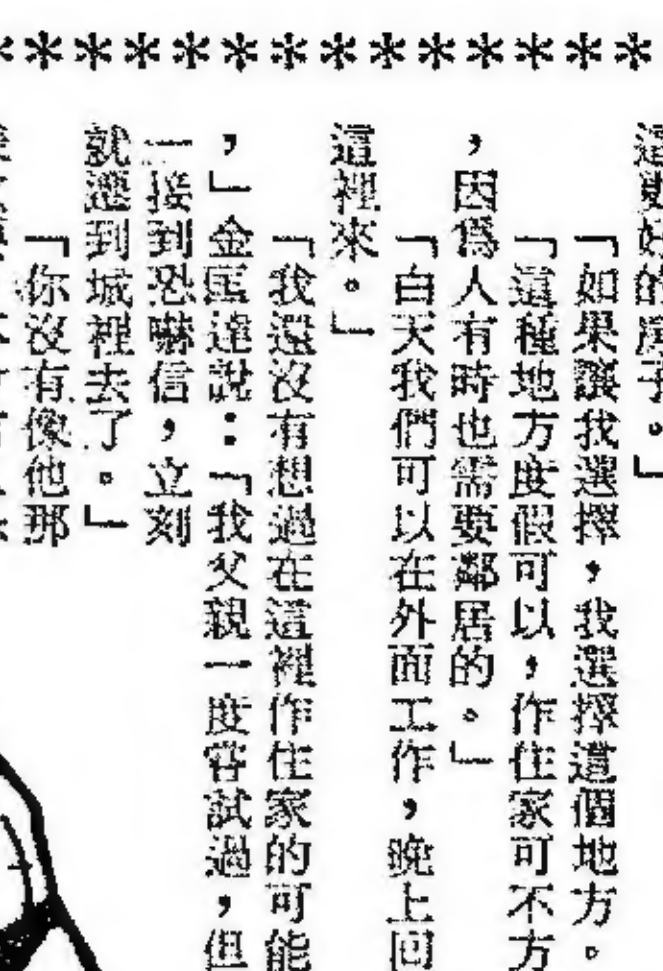 ＊＊＊＊＊＊＊＊＊＊＊＊＊
這更好的房子。」
「如果讓我選擇，我選擇這個地方。
「這種地方度假可以，作住家可不方
，因爲人有時也需要鄰居的。」
「白天我們可以在外面工作，晚上回
這裡來。」
「我還沒有想過在這裡作住家的可能
，」金匡達說：「我父親一度嘗試過，但
一接到恐嚇信，立刻
就遷到城裡去了。」
「你沒有像他那